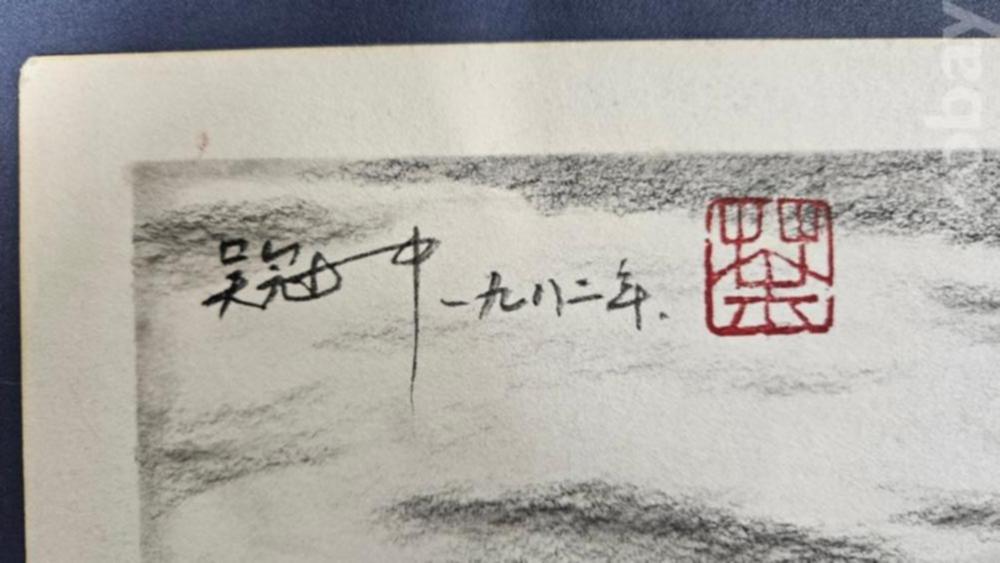 吴冠中 一九八二年.
荼
ebay